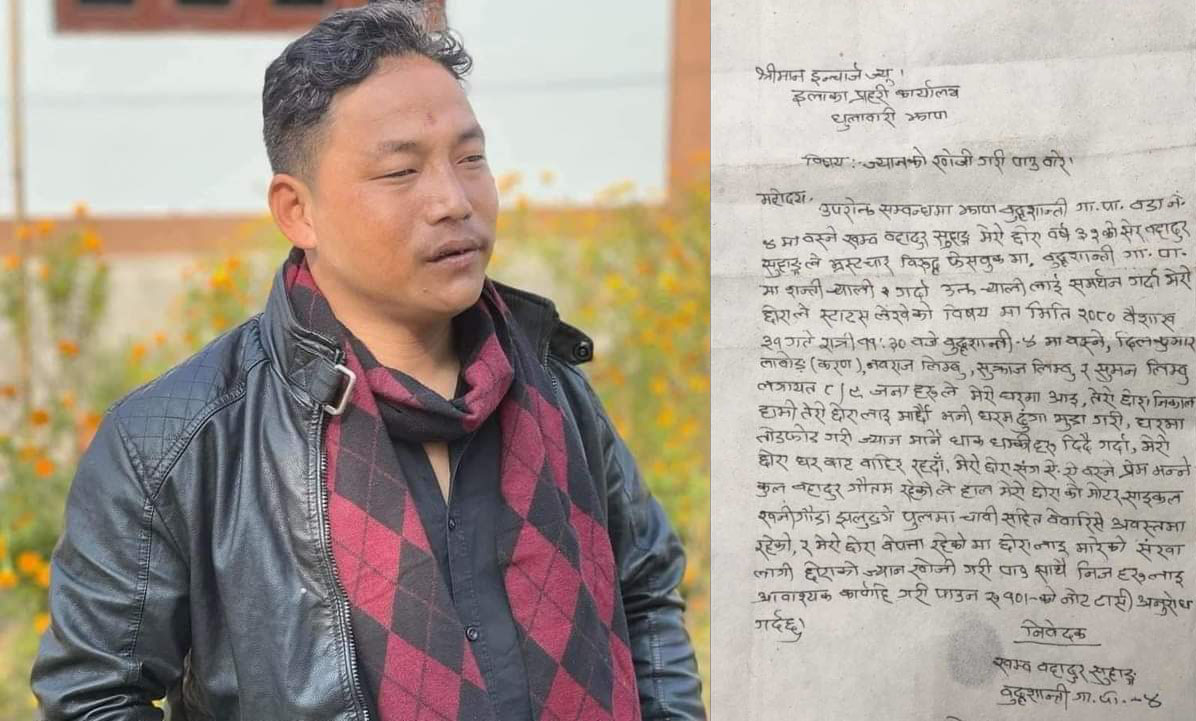 श्रीमान इन्चार्ज ज्यु!
इलाका प्रहरी कार्यालय
धुलावारी झापा
विषय:- ज्यानको खोजी गरी पाउ वारे।
महोदय,
उपरोक्त सम्वन्धमा झापा वुद्धशान्ती गा.पा. वडा नं.
४ मा वस्ने खम्व वहादुर सुहाङ्ग मेरो छोरा वर्ष ३२ को सेर वहादुर
सुहाङ्गले भ्रस्टचार विरुद्ध फेसवुक मा, वुद्धशान्ती गा.पा.
मा शान्ती ¥याली गर्दा उक्त ¥याली लाई समर्थन गर्दा मेरो
छोराले स्टाटस लेखेको विषय मा मिति २०८० वैशाख
३१ गते रात्री ३० वजे वुद्धशान्ती-४ मा वस्ने, दिलकुमार
(करण), नवराज लिम्वु, लिम्वु र सुमन लिम्वु
लगायत ८/९ जना हरुले मेरो घरमा आइ, तेरो छोरा निकाल
हामी तेरो छोरा लाइ मार्छौ भनी घरमा ढुंगा मुढा गरी, घरमा
तोडफोड गरी ज्यान मार्ने धाक धम्कीहरु दिदै गर्दा, मेरो
छोरा घर वाट वाहिर रहदाँ, मेरो छोरा संग वस्ने प्रेम भन्ने
कुल वहादुर गौतम रहेकोले हाल मेरो छोरा को मोटर साइकल
झलुङ्गे पुलमा चावी सहित वेवारिसे अवस्तामा
रहेको, र मेरो छोरा वेपत्ता रहेको मा छोरा लाइ मारेको संखा
लागी छोराको ज्यान खोजी गरी पाउ साथै निज हरुलाइ
आवाश्यक कार्वाहि गरी पाउन रु १०।- को नोट टासी अनुरोध
गर्दछु।
निवेदक
खम्व वहादुर सुहाङ्ग
वुद्धशान्ती गा.पा.-४